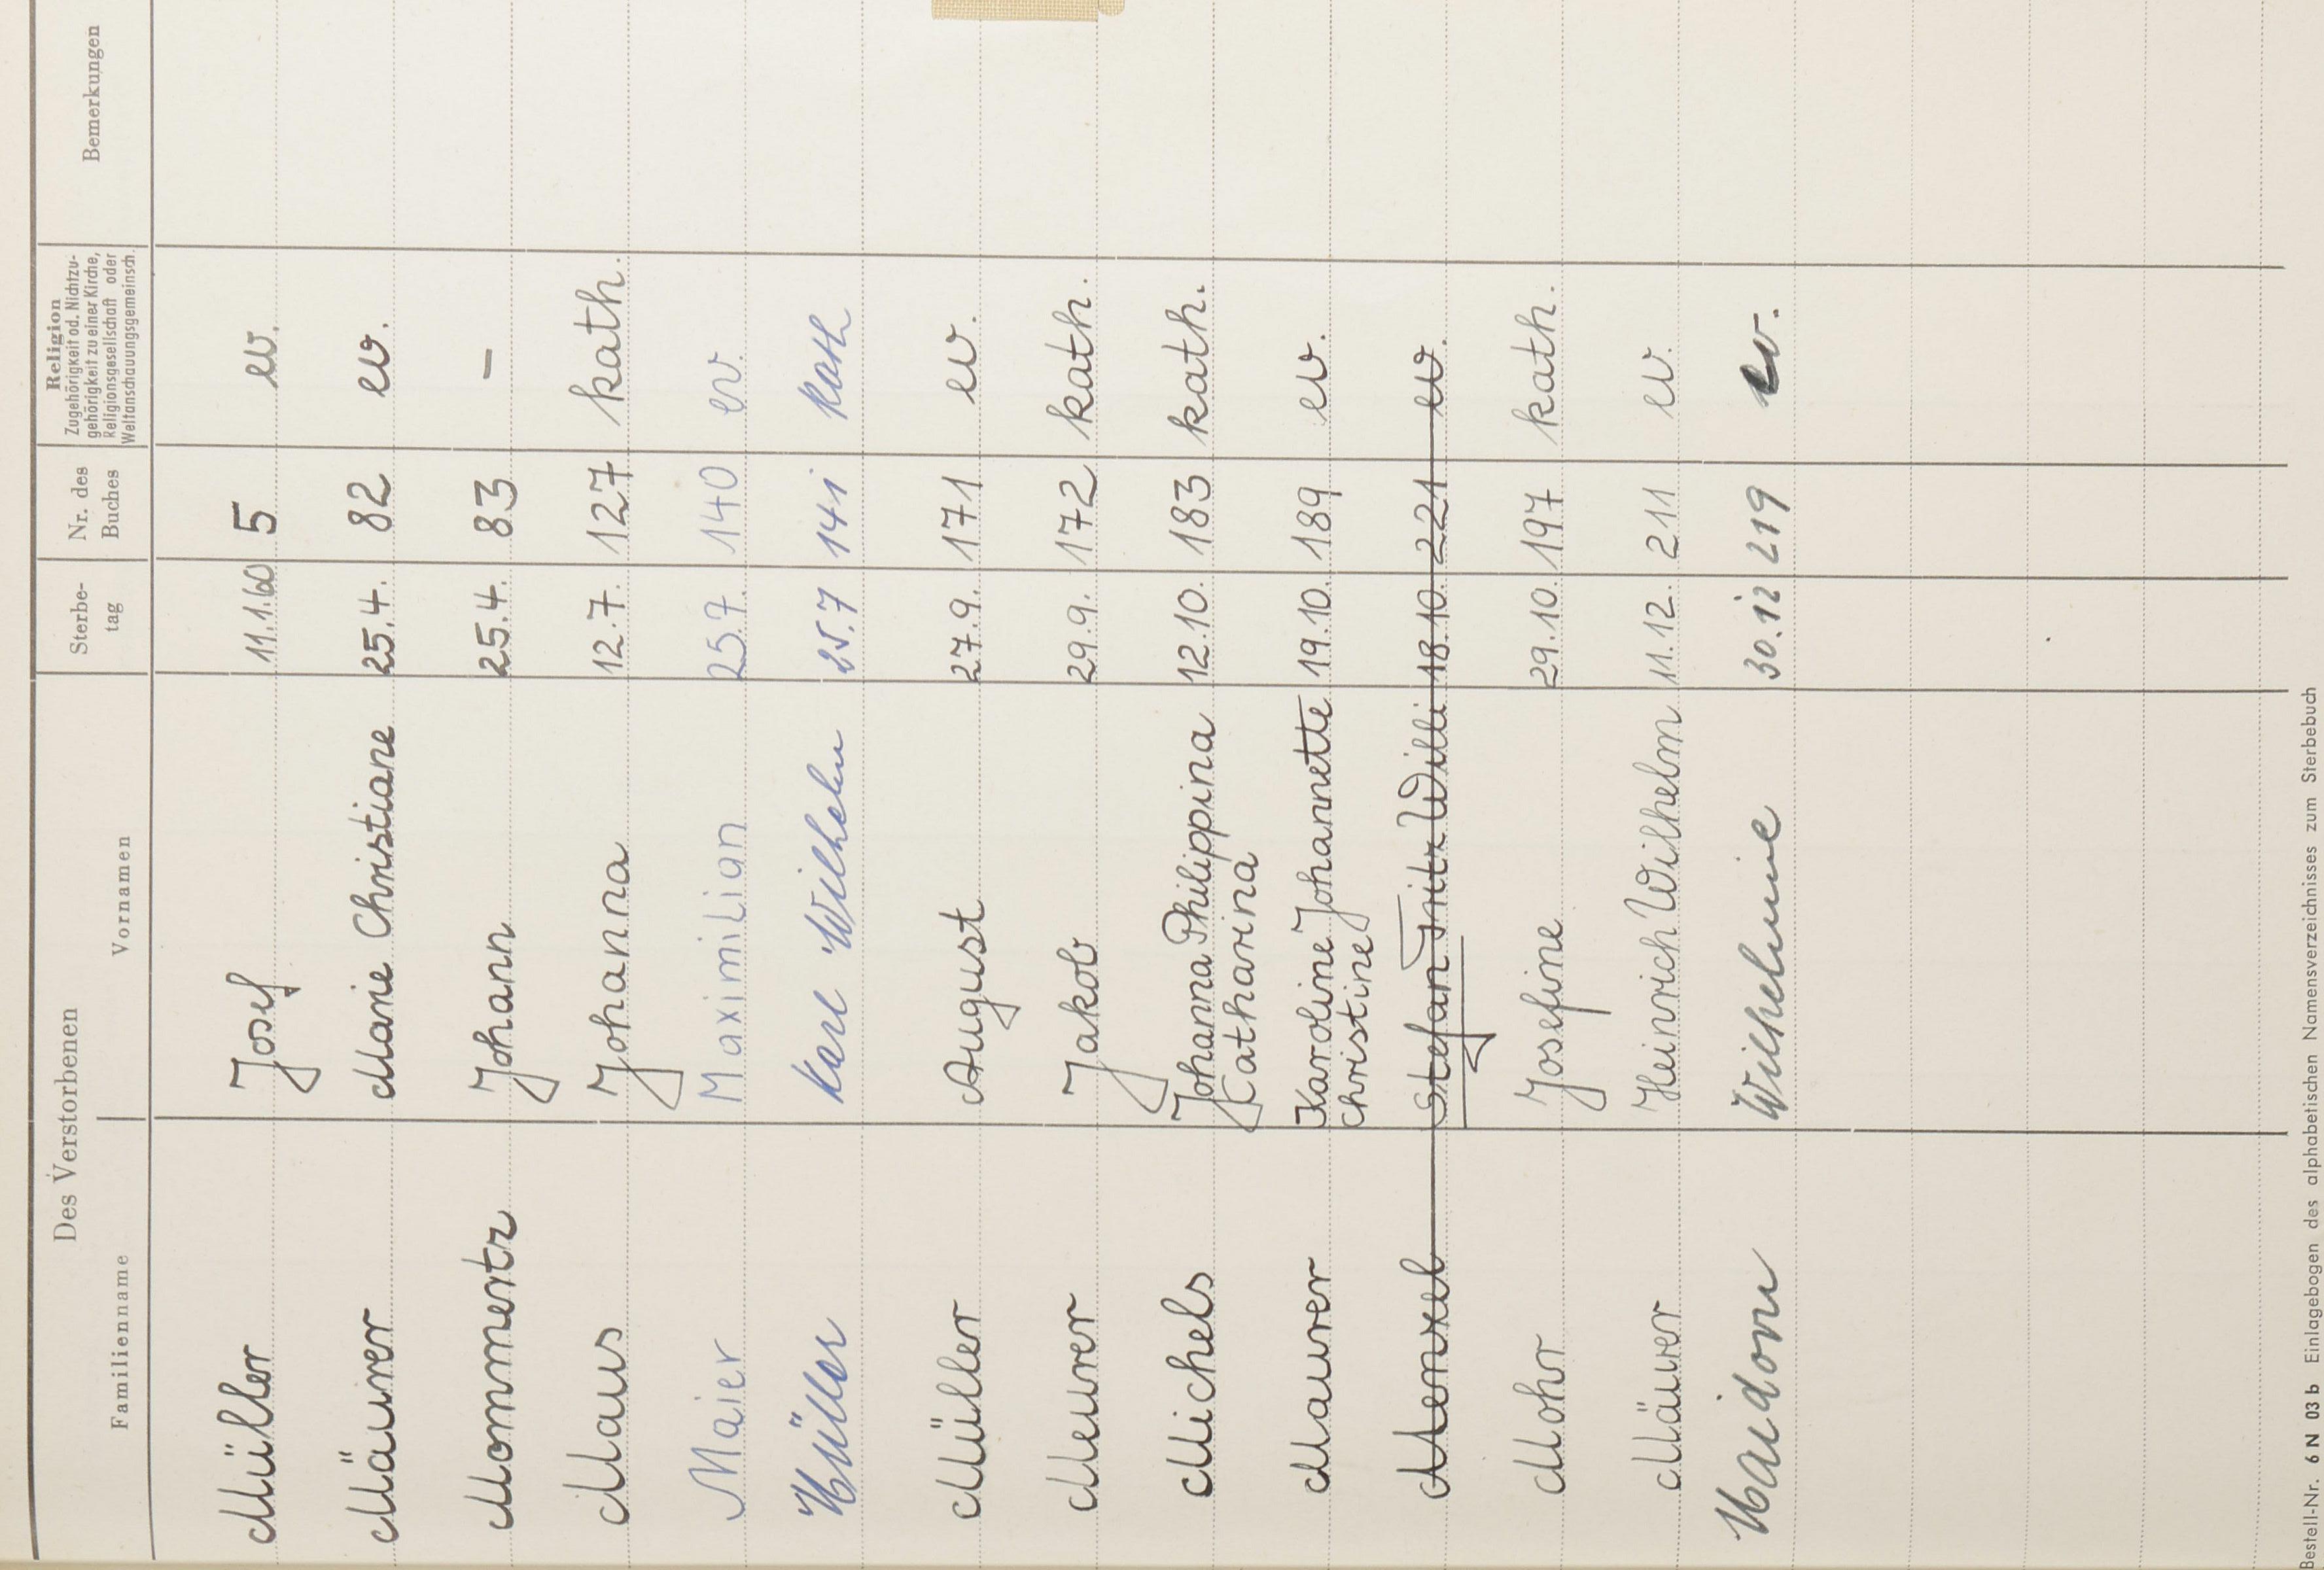 Des Verstorbenen
Familienname Vornamen
Sterbe-
tag
Nr. des
Buches
Religion
Zugehörigkeit od. Nichtzu-
gehörigkeit zu einer Kirche,
Religionsgesellschaft oder
Weltanschauungsgemeinsch.
Bemerkungen
Müller Josef 11.1.60 5 ev.
Mäurer Marie Christiane 25.4. 82 ev.
Mommertz Johann 25.4. 83 –
Maus Johanna 12.7. 127 kath.
Maier Maximilian 25.7. 140 ev.
Müller Karl Wilhelm 25.7 141 kath
Müller August 27.9. 171 ev.
Meurer Jakob 29.9. 172 kath.
Michels Johanna Philippina 12.10. 183 kath.
Katharina
Maurer Karoline Johannette 19.10. 189 ev.
Christine
Menzel Stefan Fritz Willi 18.10. 221 ev.
Mohr Josefine 29.10. 197 kath.
Mäurer Heinrich Wilhelm 11.12. 211 ev.
Maidorn Wilhelmine 30.12 219 ev.
Bestell-Nr. 6 N 03 b Einlagebogen des alphabetischen Namensverzeichnisses zum Sterbebuch